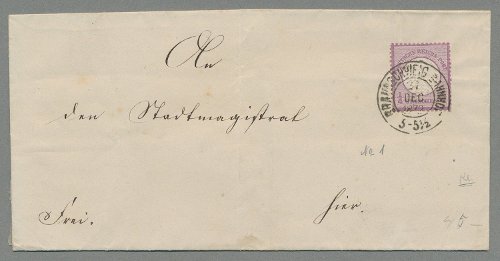 An
DEUTSCHE REICHS-POST
BRAUNSCHWEIG BAHNHOF
DEC
5-5½
den Stadtmagistrat
No 1
Frei.
hier.
45-